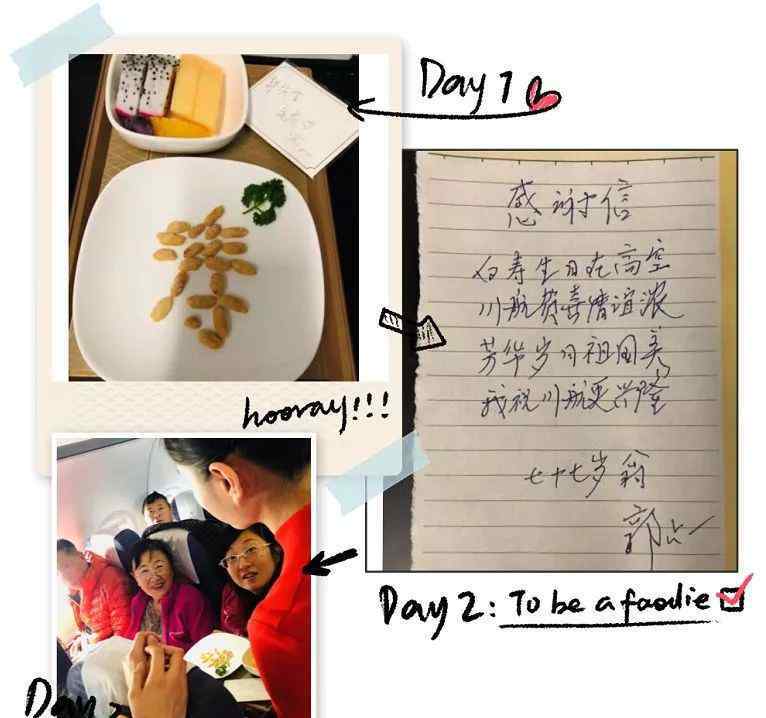 Day 1
寿
感谢信
寿生日在高空
川航贺喜情谊浓
芳华岁月祖国美
我祝川航更兴隆
七十七岁翁
郭
hooray!!!
Day 2: To be a foodie
Day